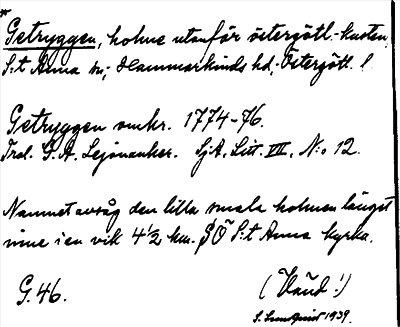 Getryggen, holme utanför östergötl.-kusten,
S:t Anna sn; Hammarkinds hd, Östergötl. l.
Getryggen omkr. 1774-76.
G. A. Lejonancker. SjA. Litt. VII. N:o 12.
Namnet avsåg den lilla smala holmen längst
inne i en vik 4 1/2 km. SÖ S:t Anna kyrka.
G. 46.
1939.